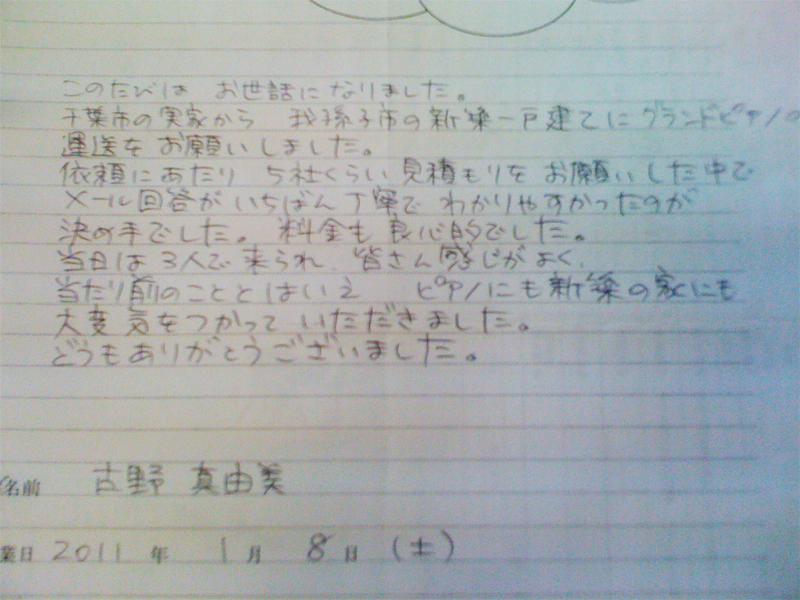 このたびは お世話になりました。
千葉市の実家から 我孫子市の新築一戸建てにグランドピアノの
運送をお願いしました。
依頼にあたり 5社くらい見積もりをお願いした中で
メール回答がいちばん丁寧で わかりやすかったのが
決め手でした。料金も良心的でした。
当日は3人で来られ、皆さん感じがよく、
当たり前のこととはいえ ピアノにも新築の家にも
大変気をつかって いただきました。
どうもありがとうございました。
名前 古野 真由美
業日 2011 年 1 月 8 日 (土)